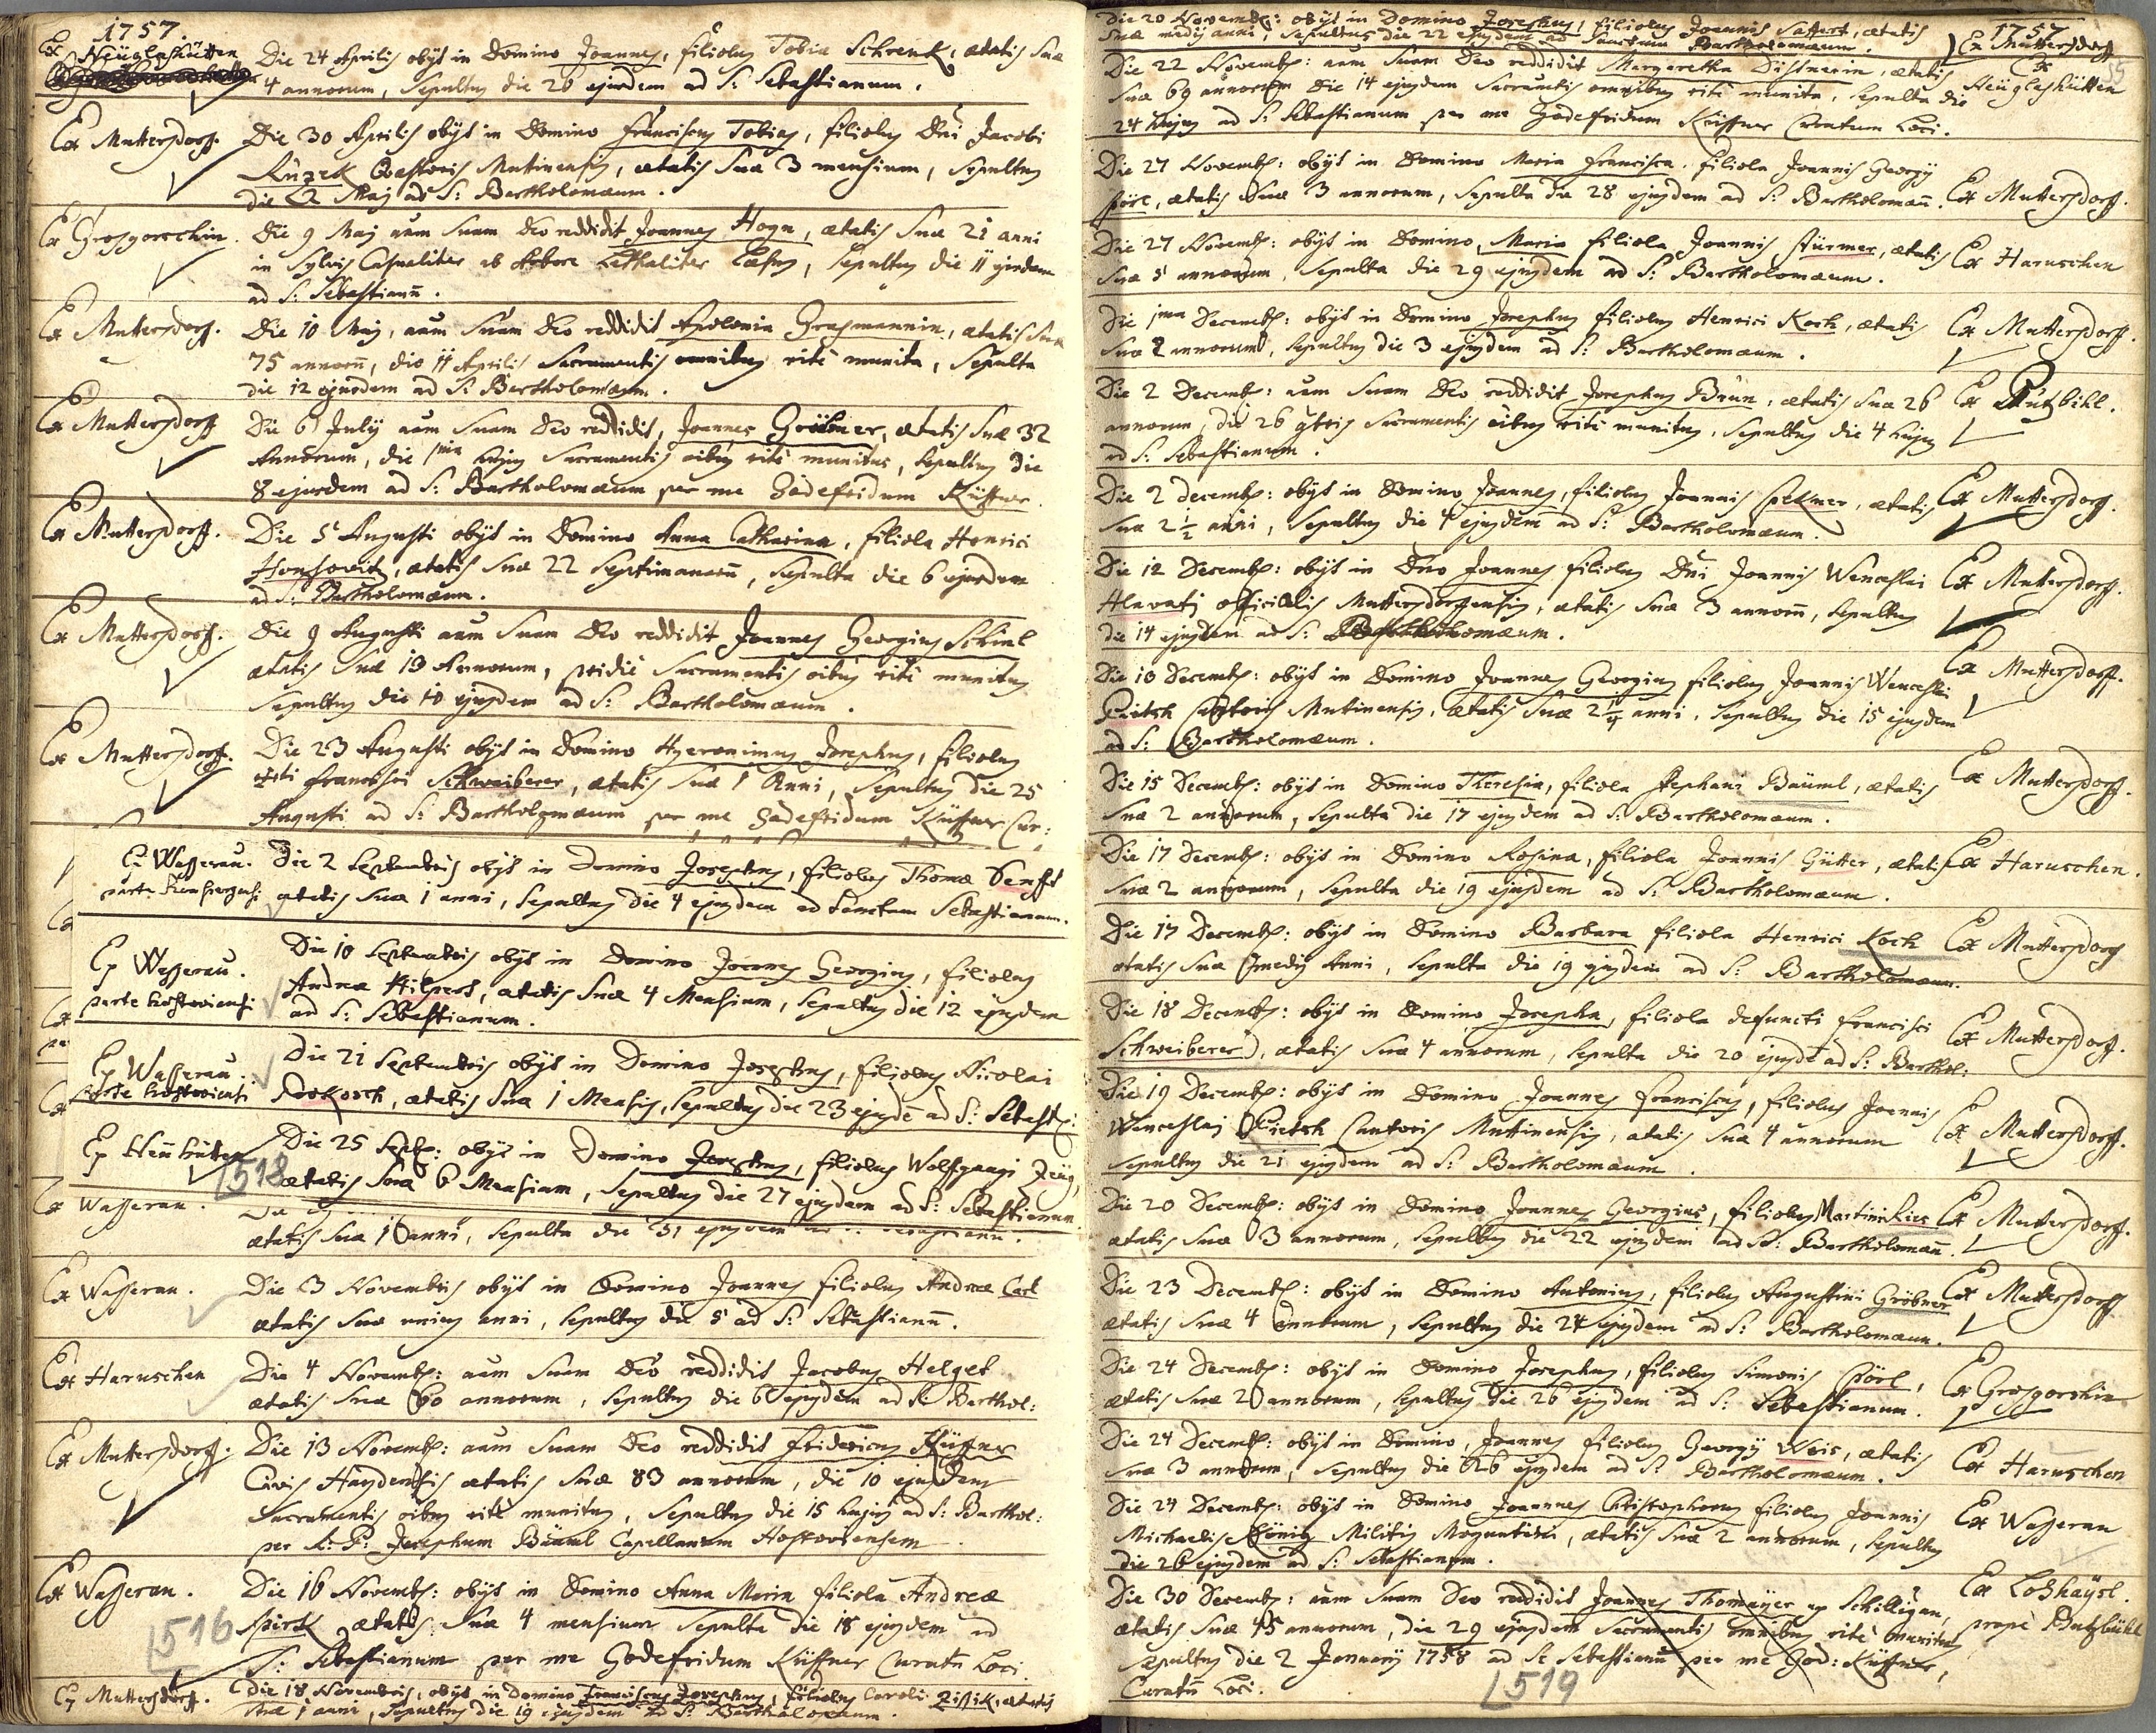 1757.
Ex Neügleshütten
Die 24 Aprilis obijt in Domino Joannes, filiolus Tobiæ Schrenk, ætatis suæ
4 annorum, sepultus die 26 ejusdem ad S: Sebastianum.
Ex Muttersdorf.
Die 30 Aprilis obijt in Domino Franciscus Tobias, filiolus Dni Jacobi
Ružek Quæstoris Mutinensis, ætatis suæ 3 mensium, sepultus
die 2 Maij ad S: Bartholomæum.
Ex Grosgorschin.
Die 9 Maij aam suam Deo reddidit Joannes Hogn, ætatis suæ 21 anni
in sylvis casualiter ab Arbore lethaliter læsus, sepultus die 11 ejusdem
ad S: Sebastianū.
Ex Muttersdorf.
Die 10 Maij, aam suam Deo reddidit Apolonia Grasmannin, ætatis suæ
75 annorū, die 11 Aprilis Sacramentis omnibus ritè munita, sepulta
die 12 ejusdem ad S: Bartholomæum.
Ex Muttersdorff
Die 6 July aam suam Deo reddidit, Joannes Gröbner, ætatis suæ 32
Annorum, die 1ma hujus Sacramentis oibus ritè munitus, sepultus die
8 ejusdem ad S: Bartholomæum per me Godefridum Küffner.
Ex Muttersdorff.
Die 5 Augusti obijt in Domino Anna Catharina, filiola Henrici
, ætatis suæ 22 septimanarū, sepulta die 6 ejusdem
ad S: Bartholomæum.
Ex Muttersdorf.
Die 9 Augusti aam suam Deo reddidit Joannes Georgius Schiml
ætatis suæ 13 Annorum, pridie Sacramentis oibus ritè munitus
sepultus die 10 ejusdem ad S: Bartholomæum.
Ex Muttersdorff.
Die 23 Augusti obijt in Domino Hyeronimus Josephus, filiolus
Francisci Schweiberer, ætatis suæ 1 Anni, sepultus die 25
Augusti ad S: Bartholomæum per me Godefridum Küffner Cur:
Ex Wasserau.
parte
Die 2 Septembris obijt in Domino Josephus, filiolus Thomæ Senfft
ætatis suæ 1 anni, sepultus die 4 ejusdem ad Sanctum Sebastianum.
Ex Wasserau.
parte Hostoviensi
Die 10 Septembris obijt in Domino Joannes Georgius, filiolus
Andreæ Hilpert, ætatis suæ 4 Mensium, sepultus die 12 ejusdem
ad S: Sebastianum.
Ex Wasserau.
parte Hostoviensi
Die 21 Septembris obijt in Domino Josephus, filiolus Nicolai
Prokosch, ætatis suæ 1 Mensis, sepultus die 23 ejusdē ad S: Sebast:
Ex Neühütten
Die 25 Septb: obijt in Domino Josephus, filiolus Wolfgangi Zeüg,
518
ætatis suæ 6 Mensium, sepultus die 27 ejusdem ad S: Sebastianum.
Ex Wasserau.
ætatis suæ 1 anni, sepulta die 31 ejusdem
Ex Wasserau.
Die 3 Novembris obijt in Domino Joannes filiolus Andreæ Carl
ætatis suæ unius anni, sepultus die 5 ad S: Sebastianū.
Ex Haruschen
Die 4 Novemb: aam suam Deo reddidit Jacobus Helget
ætatis suæ 60 annorum, sepultus die 6 ejusdem ad S: Barthol:
Ex Muttersdorff.
Die 13 Novemb: aam suam Deo reddidit Fridericus Küffner
Civis Haydensis ætatis suæ 83 annorum, die 10 ejusdem
Sacramentis oibus ritè munitus, sepultus die 15 hujus ad S: Barthol:
per A: P: Josephum Bäuml Capellanum Hostoviensem
Ex Wasserau.
Die 16 Novemb: obijt in Domino Anna Maria filiola Andreæ
516
Spirk ætatis suæ 4 mensium sepulta die 18 ejusdem ad
S: Sebastianum per me Godefridum Küffner Curatū Loci.
Ex Muttersdorf.
Die 18 Novembris, obijt in Domino Franciscus Josephus, filiolus Caroli Zissik, ætatis
suæ 1 anni, sepultus die 19 ejusdem ad S: Bartholomæum.
Die 20 Novemb: obijt in Domino Josephus, filiolus Joannis Sattert, ætatis
suæ medij anni, sepultus die 22 ejusdem ad Sanctum Bartholomæum.
1757
Ex Muttersdorff
55
Die 22 Novemb: aam suam Deo reddidit Margaretha Distnerin, ætatis
suæ 69 annorum die 14 ejusdem Sacramentis omnibus ritè munita, sepulta die
24 hujus ad S: Sebastianum per me Godefridum Küffner Curatum Loci.
Ex Neügleshütten
Die 27 Novemb: obijt in Domino Maria Francisca, filiola Joannis Georgij
Pörl, ætatis suæ 3 annorum, sepulta die 28 ejusdem ad S: Bartholomæū.
Ex Muttersdorf.
Die 27 Novemb: obijt in Domino, Maria filiola Joannis Stürmer, ætatis
suæ 5 annorum, sepulta die 29 ejusdem ad S: Bartholomæum.
Ex Haruschen
Die 1ma Decemb: obijt in Domino Josephus filiolus Henrici Koch, ætatis
suæ 2 annorum, sepultus die 3 ejusdem ad S: Bartholomæum.
Ex Muttersdorf.
Die 2 Decemb: aam suam Deo reddidit Josephus Brun, ætatis suæ 26
annorum, die 26 9bris Sacramentis oibus ritè munitus, sepultus die 4 hujus
ad S: Sebastianum.
Ex Putzbihl.
Die 2 Decemb: obijt in Domino Joannes, filiolus Joannis Pekner, ætatis
suæ 2 1/2 anni, sepultus die 4 ejusdem ad S: Bartholomæum.
Ex Muttersdorf.
Die 12 Decemb: obijt in Dno Joannes filiolus Dni Joannis Wenceslai
Hlavatj officialis Muttersdorffensis, ætatis suæ 3 annorū, sepultus
die 14 ejusdem ad S: Bartholomæum.
Ex Muttersdorf.
Die 13 Decemb: obijt in Domino Joannes Georgius filiolus Joannis Wenceslai
Pietsch Cantoris Mutinensis, ætatis suæ 2 1/4 anni, sepultus die 15 ejusdem
ad S: Bartholomæum.
Ex Muttersdorff.
Die 15 Decemb: obijt in Domino Theresia, filiola Stephani Bäuml, ætatis
suæ 2 annorum, sepulta die 17 ejusdem ad S: Bartholomæum.
Ex Muttersdorf.
Die 17 Decemb: obijt in Domino Rosina, filiola Joannis Gütter, ætatis
suæ 2 annorum, sepulta die 19 ejusdem ad S: Bartholomæum.
Ex Haruschen.
Die 17 Decemb: obijt in Domino Barbara filiola Henrici Koch
ætatis suæ medij Anni, sepulta die 19 ejusdem ad S: Bartholomæum.
Ex Muttersdorf
Die 18 Decemb: obijt in Domino Josepha, filiola defuncti Francisci
Schweiberer, ætatis suæ 4 annorum, sepulta die 20 ejusdē ad S: Barthol:
Ex Muttersdorf.
Die 19 Decemb: obijt in Domino Joannes Franciscus, filiolus Joannis
Wenceslaj Pietsch Cantoris Muttinensis, ætatis suæ 4 annorum
sepultus die 21 ejusdem ad S: Bartholomæum.
Ex Muttersdorf.
Die 20 Decemb: obijt in Domino Joannes Georgius, filiolus Martini Lies
ætatis suæ 3 annorum, sepultus die 22 ejusdem ad S: Bartholomæū.
Ex Muttersdorf.
Die 23 Decemb: obijt in Domino Antonius, filiolus Augustini Gröbner
ætatis suæ 4 annorum, sepultus die 24 ejusdem ad S: Bartholomæum.
Ex Muttersdorff
Die 24 Decemb: obijt in Domino Josephus, filiolus Simonis Pörl,
ætatis suæ 2 annorum, sepultus die 26 ejusdem ad S: Sebastianum.
Ex Grosgorschin
Die 24 Decemb: obijt in Domino, Joannes filiolus Georgij Weis, ætatis
suæ 3 annorum, sepultus die 26 ejusdem ad S: Bartholomæum.
Ex Haruschen
Die 24 Decemb: obijt in Domino Joannes Christophorus filiolus Joannis
Michaelis König Militis Moguntini, ætatis suæ 2 annorum, sepultus
die 26 ejusdem ad S: Sebastianum.
Ex Wasserau
Die 30 Decemb: aam suam Deo reddidit Joannes Thomayer ex Schilligau,
ætatis suæ 45 annorum, die 29 ejusdem Sacramentis omnibus ritè munitus
sepultus die 2 Januarij 1758 ad S: Sebastianū per me God: Küffner,
Curatū Loci.
Ex Loßhaysl.
propè Butzbühl
519